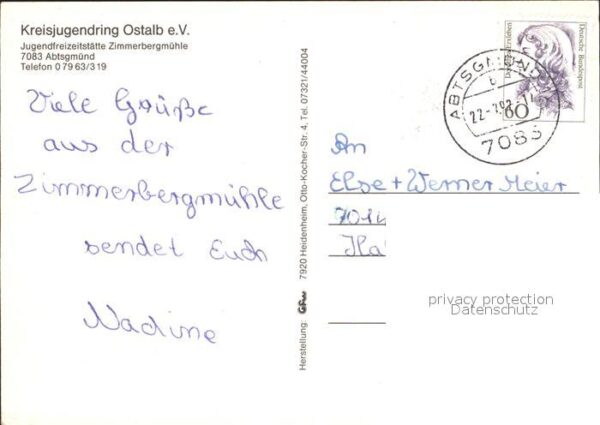 Kreisjugendring Ostalb e.V.
Jugendfreizeitstätte Zimmerbergmühle
7083 Abtsgmünd
Telefon 0 79 63/3 19
Viele Grüße
aus der
Zimmerbergmühle
sendet Euch
Nadine
Herstellung: 7920 Heidenheim, Otto-Kocher-Str. 4, Tel. 07321/44004
Deutsche Bundespost
60
ABTSGMÜND
b
7083
An
Else + Werner Meier
privacy protection
Datenschutz